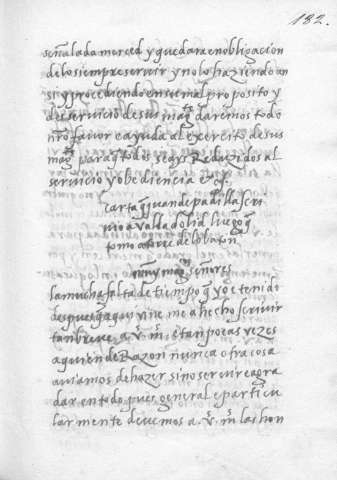 182.
señalada merced y quedara en obligacion
de lo siempre servir y no lo haziendo an
si y procediendo en su mal proposito y
de servicio de su magt daremos todo
nro favor e ayuda al exercito de sus
magt para q todos seays Reduzidos al
servicio y obediencia
carta q juan de padilla scri
vio a valladolid luego q
tomo a torre de lobaton
muy magcos señores
la mucha falta de tiempo q yo e tenido
despues q aqui vine me a hecho scrivir
tan breve a v. m. e tan pocas vezes
a quien de Razon nunca otra cosa
aviamos de hazer sino servir e agra
dar en todo pues general e particu
larmente devemos a v. m. las hon